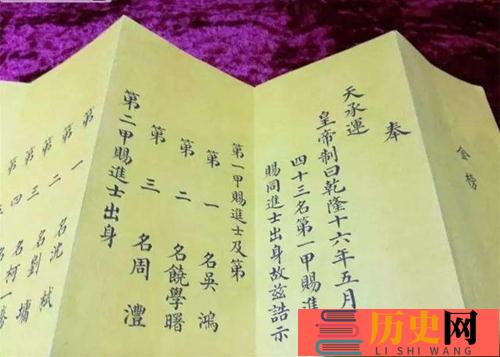 金榜
奉
天承運
皇帝制曰乾隆十六年五月
四十三名第一甲賜進
賜同進士出身故兹誥示
第一甲賜進士及第
第一名吳鴻
第二名饒學曙
第三名周灃
第二甲賜進士出身
第一名沈栻
第二名劉墉
第三名柯一
第四名
历史网
LI SHI WANG